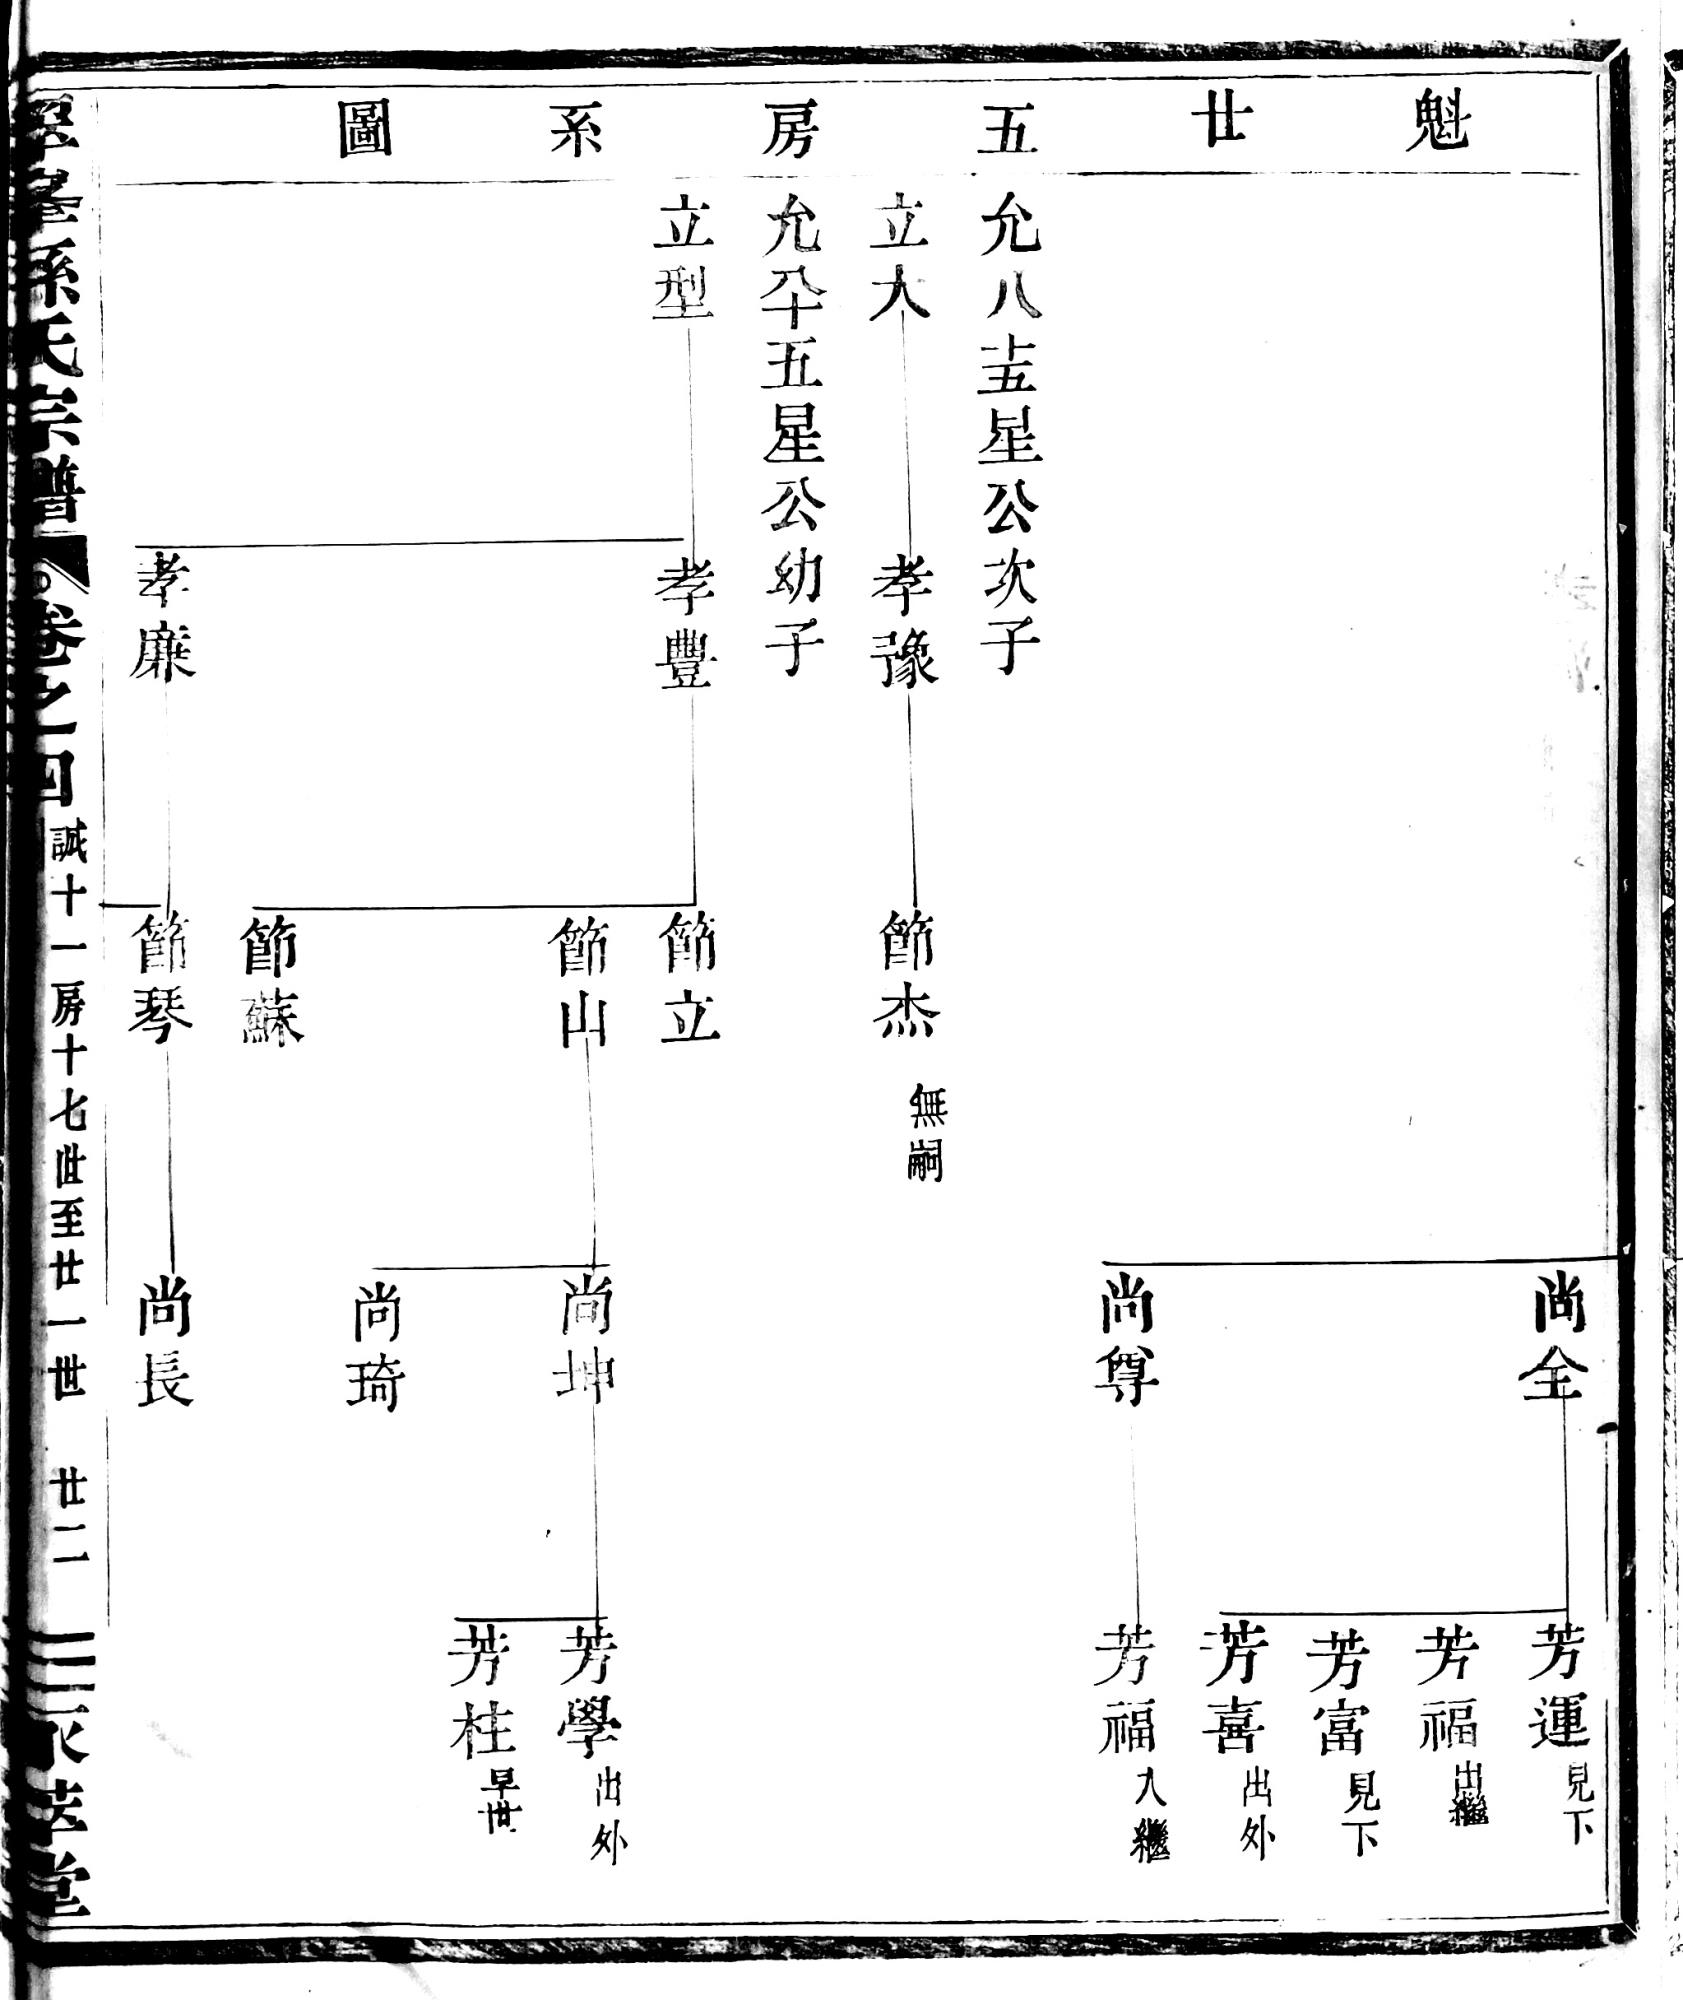 魁廿五房系圖
尚全
芳運 見下
芳福 出繼
芳富 見下
芳喜 出外
尚尊
芳福 入繼
允八十五星公次子
立大
孝豫
節杰 無嗣
允八十五星公幼子
立型
孝豐
節立
節山
尚坤
芳學 出外
芳柱 早世
尚琦
節蘇
孝廉
節琴
尚長
峯孫氏宗譜
卷之四
誠十一房十七世至廿一世
廿二
萃堂